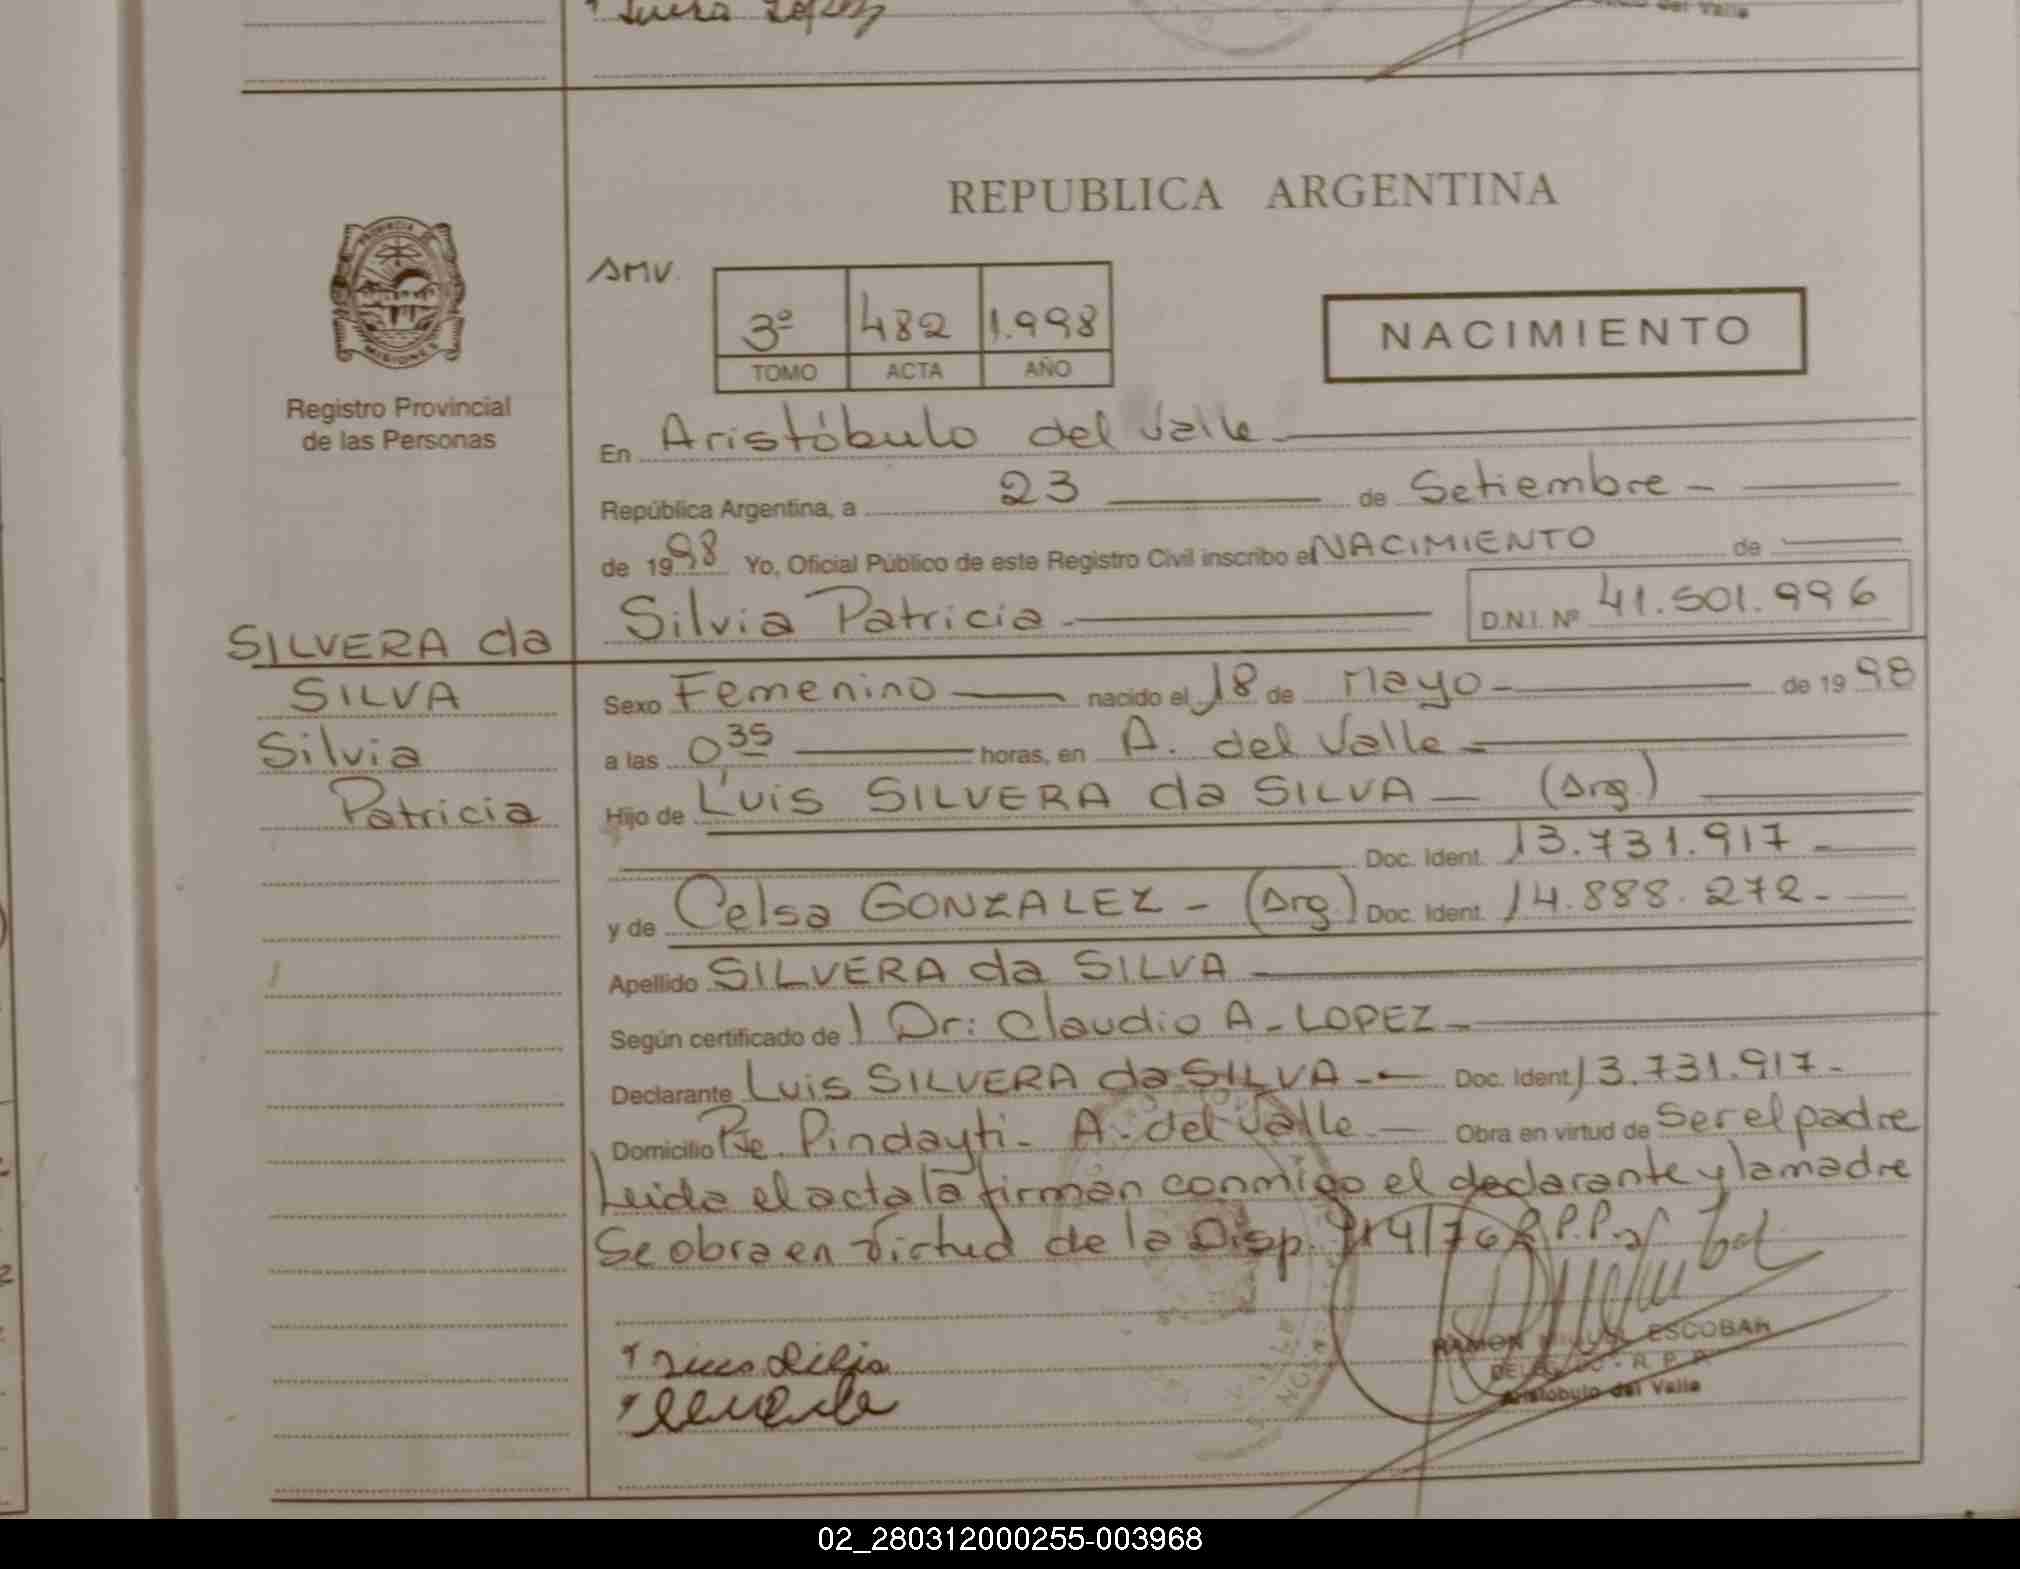 del Valle
REPUBLICA ARGENTINA
PROVINCIA DE
MISIONES
Registro Provincial
de las Personas
SMV.
3º 482 1.998
TOMO ACTA AÑO
NACIMIENTO
En Aristóbulo del Valle
República Argentina, a 23 de Setiembre -
de 1998 Yo, Oficial Público de este Registro Civil inscribo el NACIMIENTO de
Silvia Patricia D.N.I. Nº 41.501.996
SILVERA da
SILVA
Silvia
Patricia
Sexo Femenino nacido el 18 de Mayo - de 1998
a las 0,35 horas, en A. del Valle -
Hijo de Luis SILVERA da SILVA - (Arg.)
Doc. Ident. 13.731.917 -
y de Celsa GONZALEZ - (Arg.) Doc. Ident. 14.888.272 -
Apellido SILVERA da SILVA
Según certificado de l Dr: Claudio A. LOPEZ -
Declarante Luis SILVERA da SILVA - Doc. Ident 13.731.917 -
Domicilio Pje. Pindayti - A. del Valle - Obra en virtud de Ser el padre
Leida el acta la firman conmigo el declarante y la madre
Se obra en virtud de la Disp. 914/76 R.P.P.
RAMON MIGUEL ESCOBAR
DELEGADO - R. P. P.
Aristobulo del Valle
02_280312000255-003968